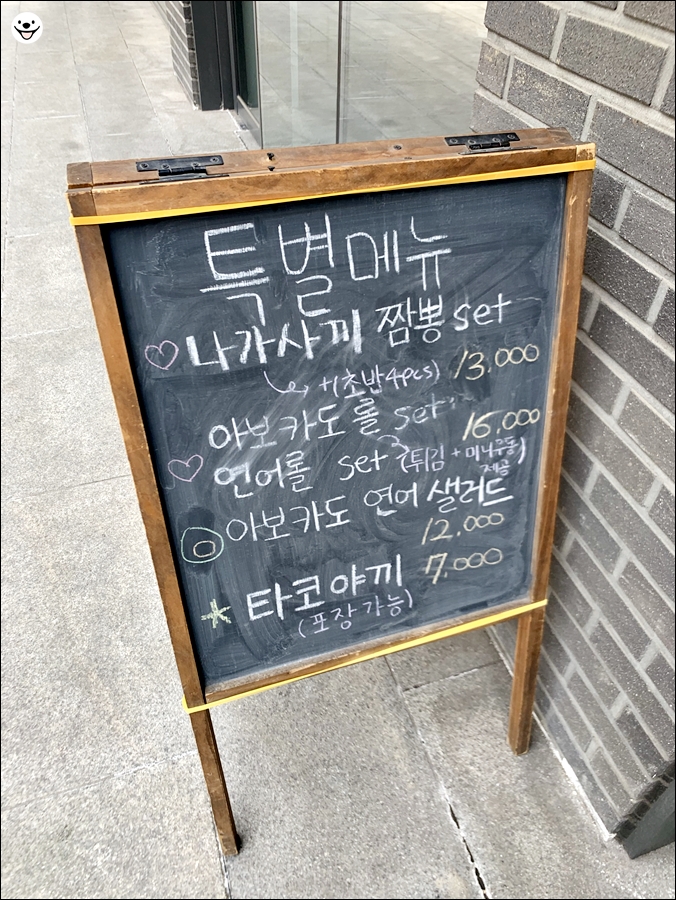 특별메뉴
나가사끼 짬뽕 set
+(초밥 4pcs) 13,000
아보카도 롤 set
16,000
연어롤 set (튀김 + 미니우동)
제공
아보카도 연어 샐러드
12,000
타코야끼 7,000
(포장 가능)